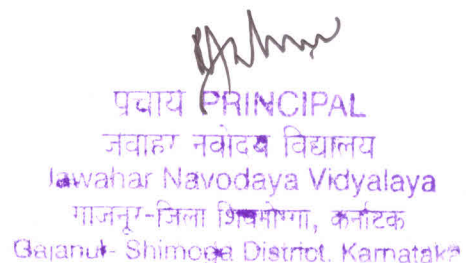 प्रचार्य PRINCIPAL
जवाहर नवोदय विद्यालय
Jawahar Navodaya Vidyalaya
गाजनूर-जिला शिवमोग्गा, कर्नाटक
Gajanur- Shimoga District, Karnataka